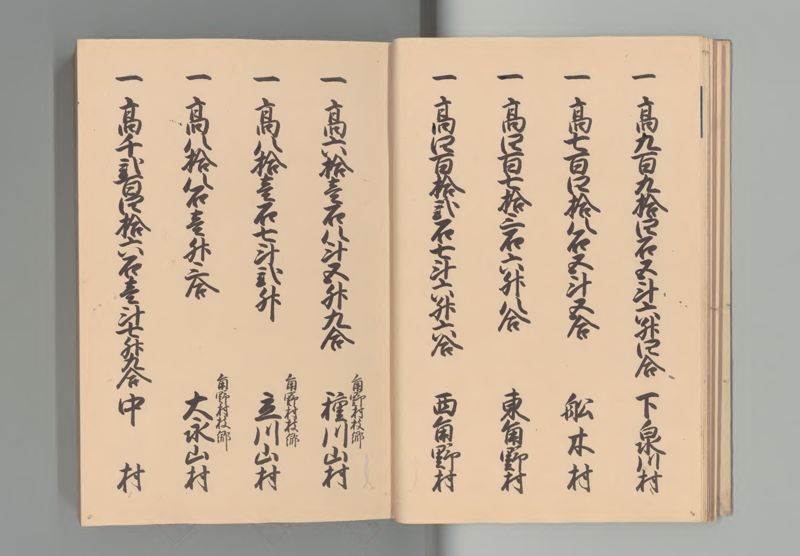 一 高九百九拾四石五斗六升四合 下泉川村
一 高七百四拾八石五斗五合 舩木村
一 高四百七拾三石六升八合 東角野村
一 高四百拾弐石七斗六升六合 西角野村
一 高六拾壱石八斗五升九合 角野村枝郷 種川山村
一 高八拾壱石七斗弐升 角野村枝郷 立川山村
一 高八拾八石壱升二合 角野村枝郷 大永山村
一 高千弐百四拾六石壱斗七升九合 中村